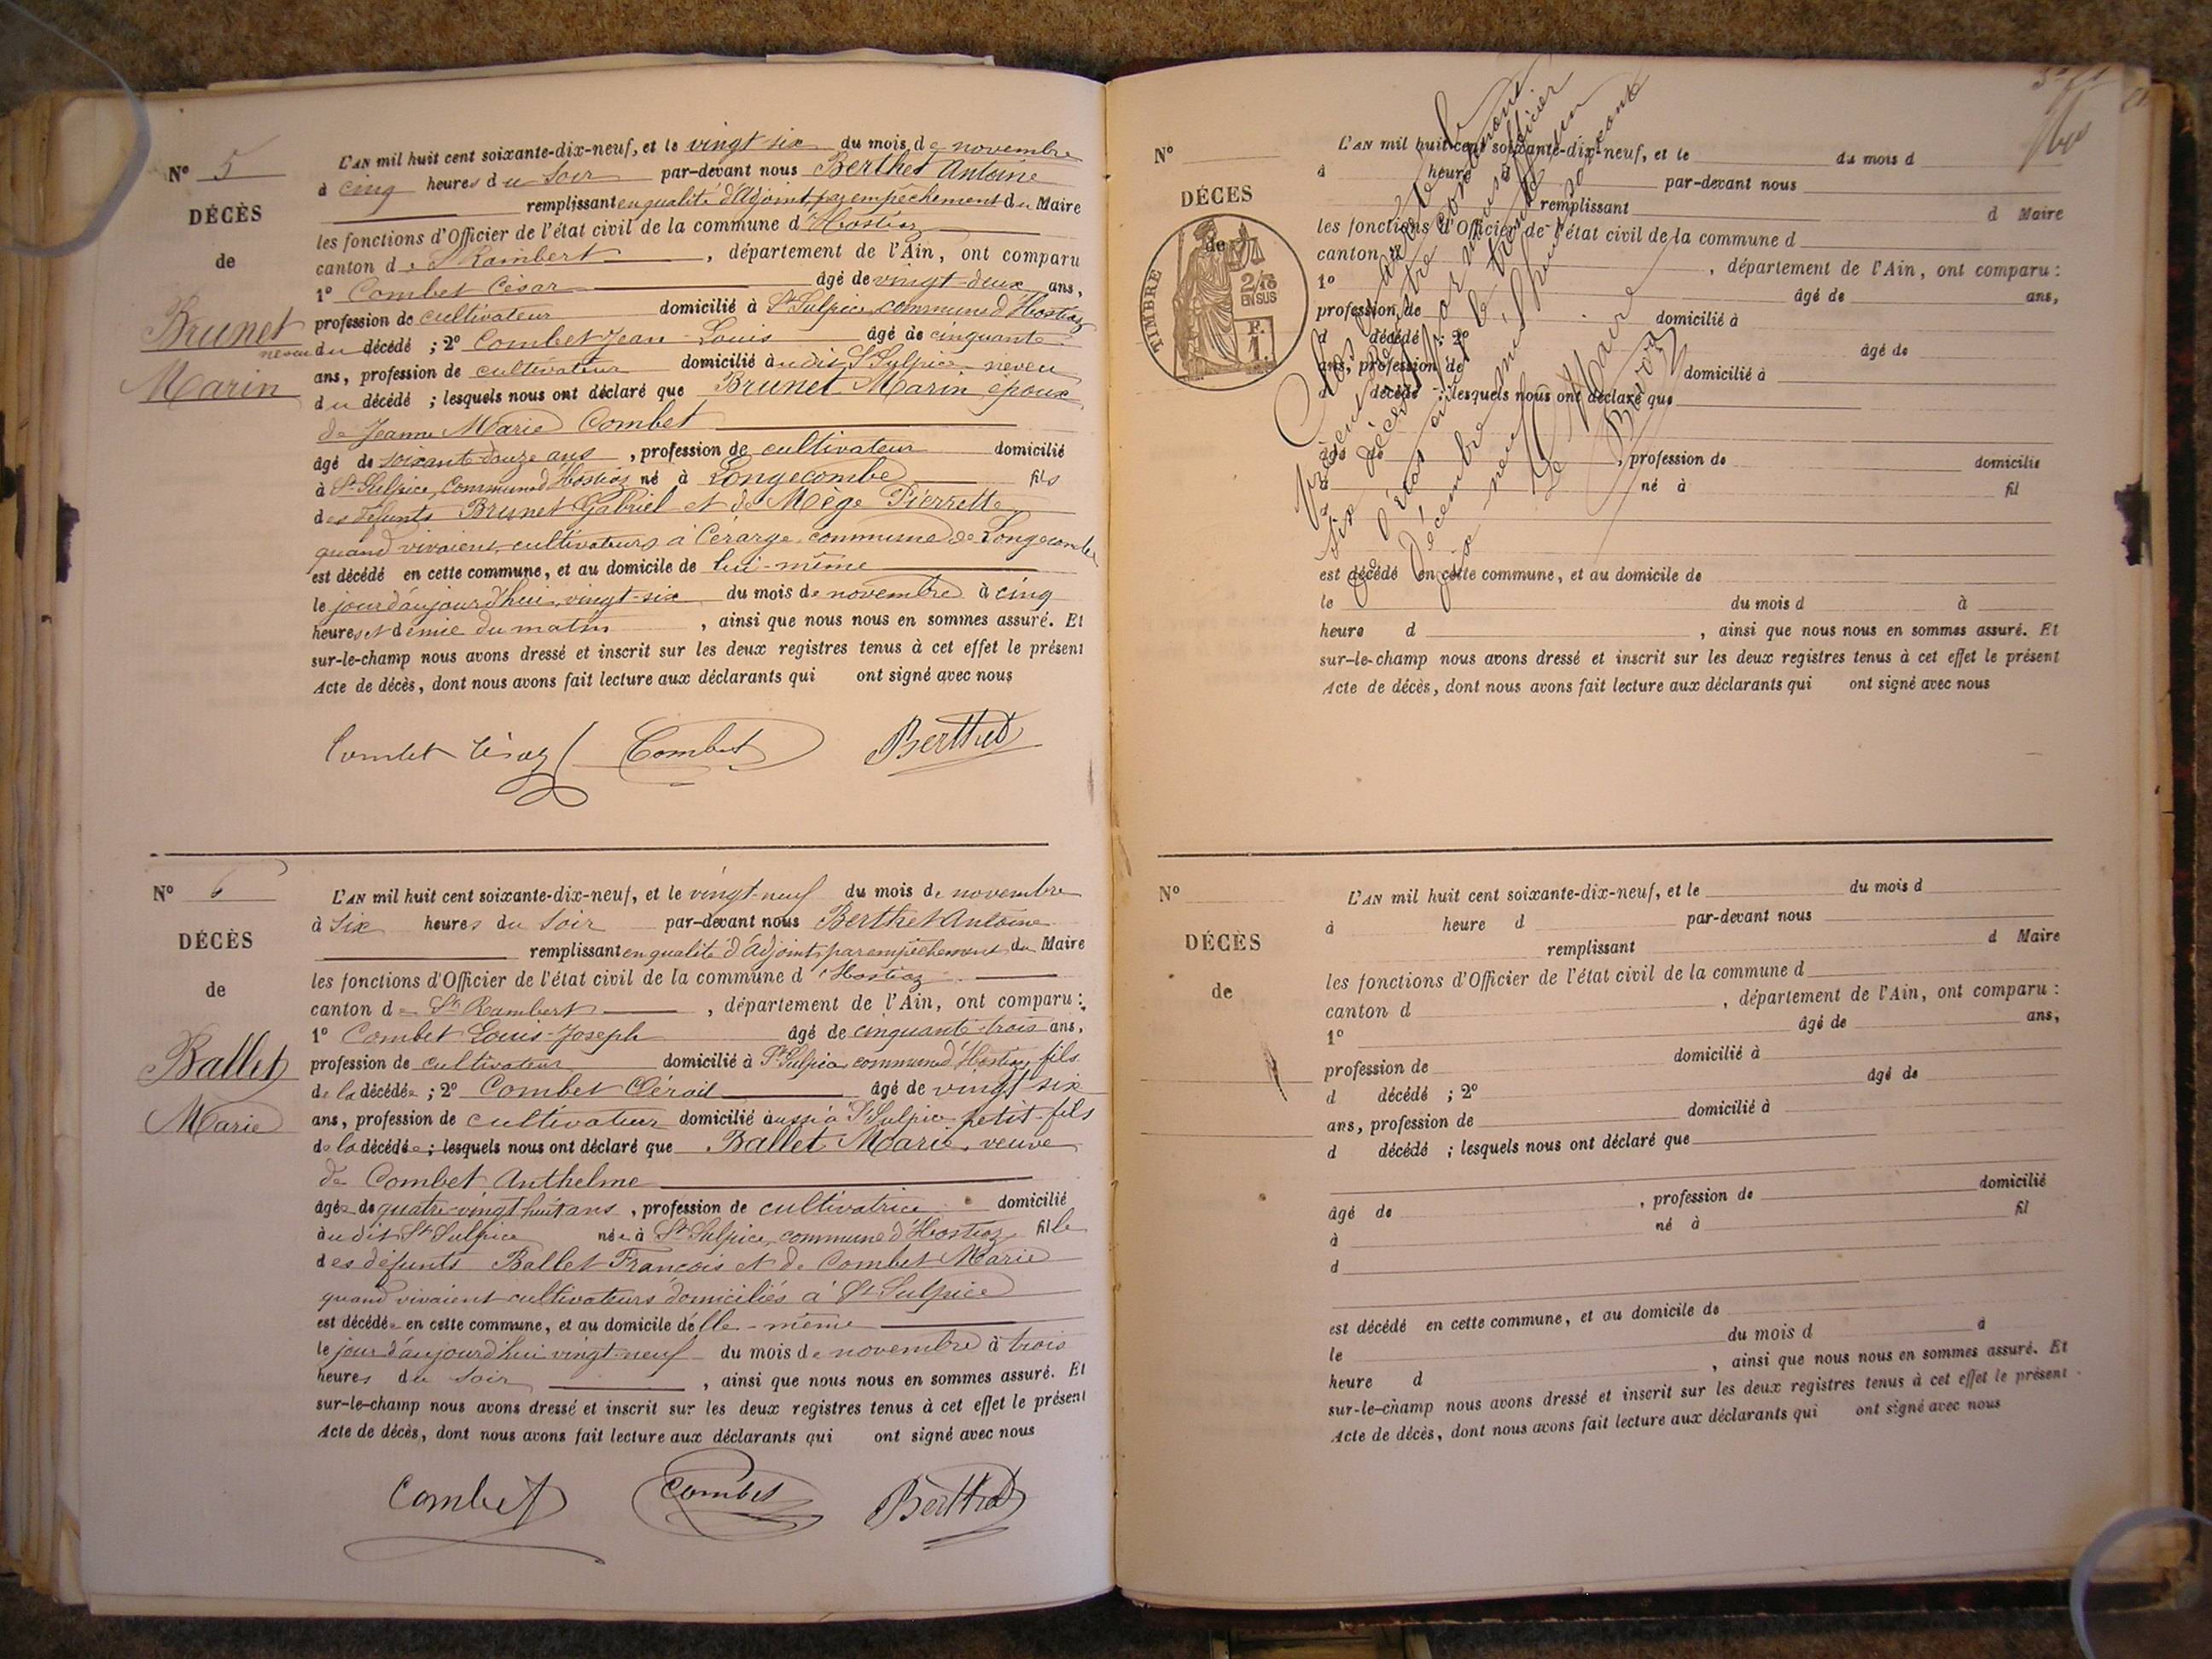 N° 5
DÉCÈS
de
Brunet
Marin
L'AN mil huit cent soixante-dix-neuf, et le vingt six du mois de novembre
à cinq heures du soir par-devant nous Berthet Antoine
remplissant en qualité d'Adjoint par empêchement du Maire
les fonctions d'Officier de l'état civil de la commune d'Hostiaz
canton de St Rambert, département de l'Ain, ont comparu
1° Combet César âgé de vingt-deux ans,
profession de cultivateur domicilié à St Sulpice, commune d'Hostiaz
neveu du décédé ; 2° Combet Jean-Louis âgé de cinquante
ans, profession de cultivateur domicilié audit St Sulpice neveu
du décédé ; lesquels nous ont déclaré que Brunet Marin époux
de Jeanne Marie Combet
âgé de soixante-douze ans, profession de cultivateur domicilié
à St Sulpice, commune d'Hostiaz né à Longecombe fils
des défunts Brunet Gabriel et de Mège Pierrette
quand vivaient cultivateurs à Cérarge commune de Longecombe
est décédé en cette commune, et au domicile de lui-même
le jour d'aujourd'hui vingt-six du mois de novembre à cinq
heures et demie du matin, ainsi que nous nous en sommes assuré. Et
sur-le-champ nous avons dressé et inscrit sur les deux registres tenus à cet effet le présent
Acte de décès, dont nous avons fait lecture aux déclarants qui ont signé avec nous
Combet César Combet Berthet
N° 6
DÉCÈS
de
Ballet
Marie
L'AN mil huit cent soixante-dix-neuf, et le vingt-neuf du mois de novembre
à six heures du soir par-devant nous Berthet Antoine
remplissant en qualité d'Adjoint par empêchement du Maire
les fonctions d'Officier de l'état civil de la commune d'Hostiaz
canton de St Rambert, département de l'Ain, ont comparu :
1° Combet Louis-Joseph âgé de cinquante-trois ans,
profession de cultivateur domicilié à St Sulpice commune d'Hostiaz fils
de la décédée ; 2° Combet Clérail âgé de vingt six
ans, profession de cultivateur domicilié aussi à St Sulpice petit-fils
de la décédée ; lesquels nous ont déclaré que Ballet Marie, veuve
de Combet Anthelme
âgée de quatre-vingt huit ans, profession de cultivatrice domicilié
audit St Sulpice née à St Sulpice, commune d'Hostiaz fille
des défunts Ballet François et de Combet Marie
quand vivaient cultivateurs domiciliés à St Sulpice
est décédée en cette commune, et au domicile d'elle-même
le jour d'aujourd'hui vingt-neuf du mois de novembre à trois
heures du soir, ainsi que nous nous en sommes assuré. Et
sur-le-champ nous avons dressé et inscrit sur les deux registres tenus à cet effet le présent
Acte de décès, dont nous avons fait lecture aux déclarants qui ont signé avec nous
Combet Combet Berthet
N°
DÉCÈS
de
TIMBRE
2/10
EN SUS
F.
1.
L'AN mil huit cent soixante-dix-neuf, et le du mois d
à heure d par-devant nous
remplissant d Maire
les fonctions d'Officier de l'état civil de la commune d
canton d, département de l'Ain, ont comparu :
1° âgé de ans,
profession de domicilié à
d décédé ; 2° âgé de
ans, profession de domicilié à
d décédé ; lesquels nous ont déclaré que
âgé de, profession de domicilié
à né à fil
d
est décédé en cette commune, et au domicile de
le du mois d à
heure d, ainsi que nous nous en sommes assuré. Et
sur-le-champ nous avons dressé et inscrit sur les deux registres tenus à cet effet le présent
Acte de décès, dont nous avons fait lecture aux déclarants qui ont signé avec nous
Clos et arrêté le
présent registre contenant
six décès par nous officier
d'état civil le trente un
décembre mil huit cent soixante
dix neuf
Le Maire
N°
DÉCÈS
de
L'AN mil huit cent soixante-dix-neuf, et le du mois d
à heure d par-devant nous
remplissant d Maire
les fonctions d'Officier de l'état civil de la commune d
canton d, département de l'Ain, ont comparu :
1° âgé de ans,
profession de domicilié à
d décédé ; 2° âgé de
ans, profession de domicilié à
d décédé ; lesquels nous ont déclaré que
âgé de, profession de domicilié
à né à fil
d
est décédé en cette commune, et au domicile de
le du mois d à
heure d, ainsi que nous nous en sommes assuré. Et
sur-le-champ nous avons dressé et inscrit sur les deux registres tenus à cet effet le présent
Acte de décès, dont nous avons fait lecture aux déclarants qui ont signé avec nous